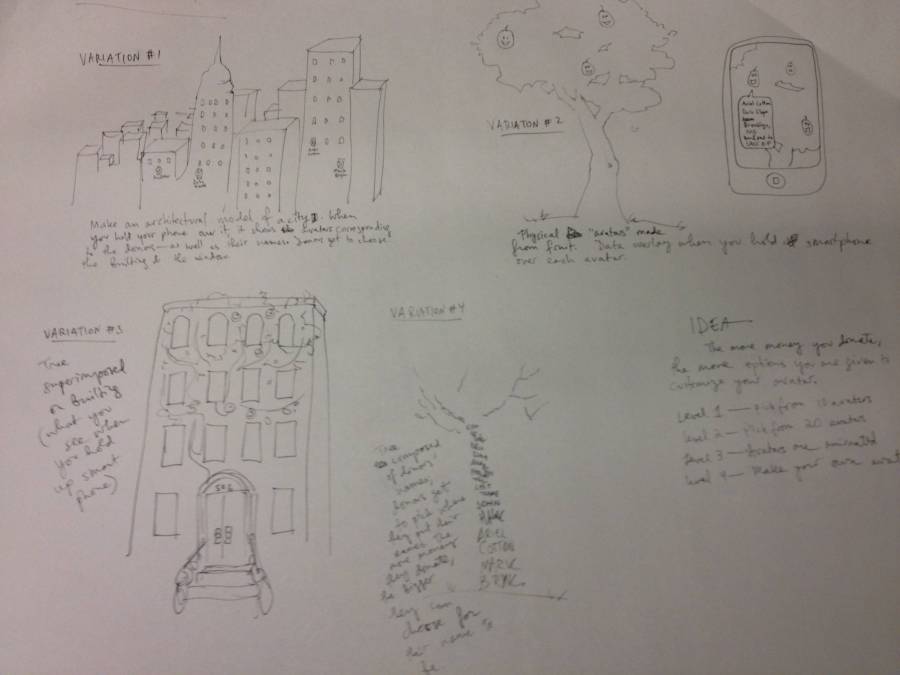 VARIATION #1
Make an architectural model of a city. When
you hold your phone over it, it shows avatars corresponding
to the donors—as well as their names. Donors get to choose
the building & the window
VARIATION #2
Physical "avatars" made
from fruit. Data overlay when you hold smartphone
over each avatar.
Ariel Cotton
Park Slope
Brooklyn,
VARIATION #3
Tree
superimposed
on Building
(what you
see when
you hold
up smart
phone)
VARIATION #4
Tree
composed
of donors'
names;
donors get
to pick where
they put their
names. The
more money
they donate,
the bigger
they can
choose for
their name to
be.
ARIEL
COTTON
MARK
IDEA
The more money you donate,
the more options you are given to
customize your avatar.
Level 1 — Pick from 10 avatars
Level 2 — Pick from 20 avatars
Level 3 — Avatars are animated
Level 4 — Make your own